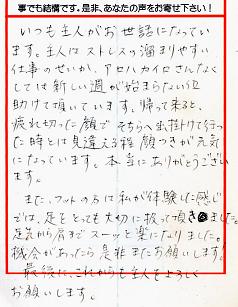 事でも結構です。是非、あなたの声をお寄せ下さい！
いつも主人がお世話になっていま
す。主人はストレスの溜まりやすい
仕事のせいか、アロハカイロさんなく
しては新しい週が始まらないロ
助けて頂いています。帰って来ると、
疲れ切った顔でそちらへ出掛けて行っ
た時とは見違える程顔つきが元気
になっています。本当にありがとうござい
ます。
また、フットの方は私が体験した感じ
では、足をとっても大切に扱って頂きました。
足先から肩までスーッと楽になりました。
機会があったら是非またお願いします！
最後に、これからも主人をよろしく
お願いします。